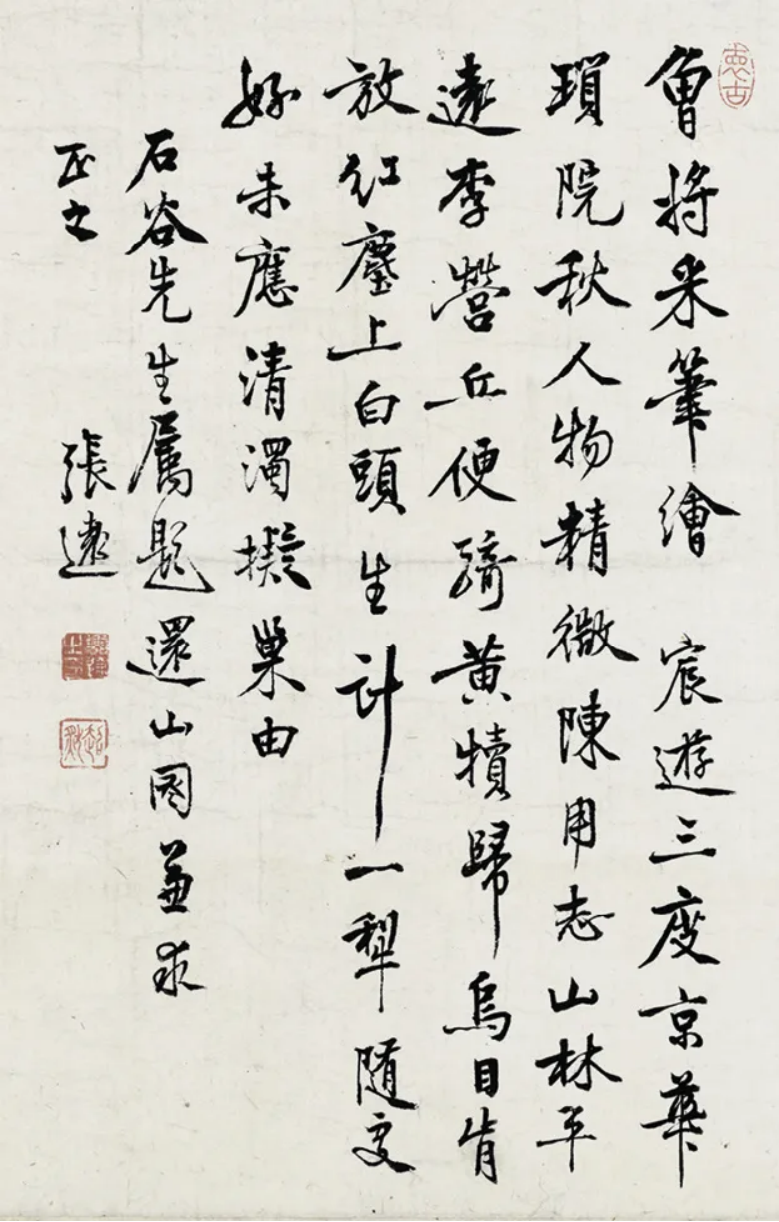 曾將采筆繪 宸遊三度京華
瑣院秋人物精微陳用志山林平
遠李營丘便騎黃犢歸烏目肯
放紅塵上白頭生計一犁隨處
好未應清濁擬巢由
石谷先生屬題還山圖兼求
正之 張遠
超然